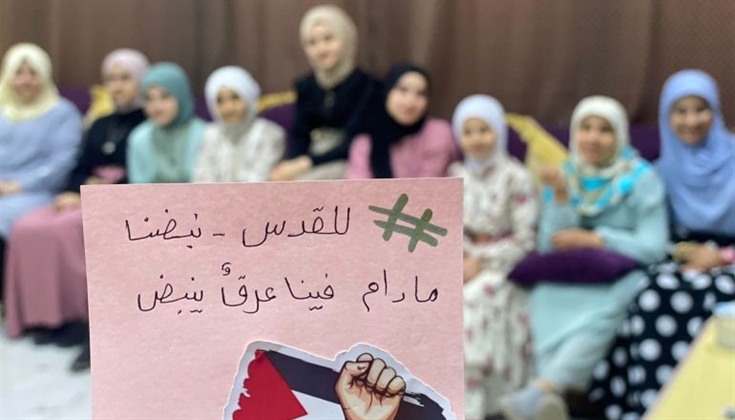 # للقدس - نبضنا
مادام فينا عرقٌ ينبض